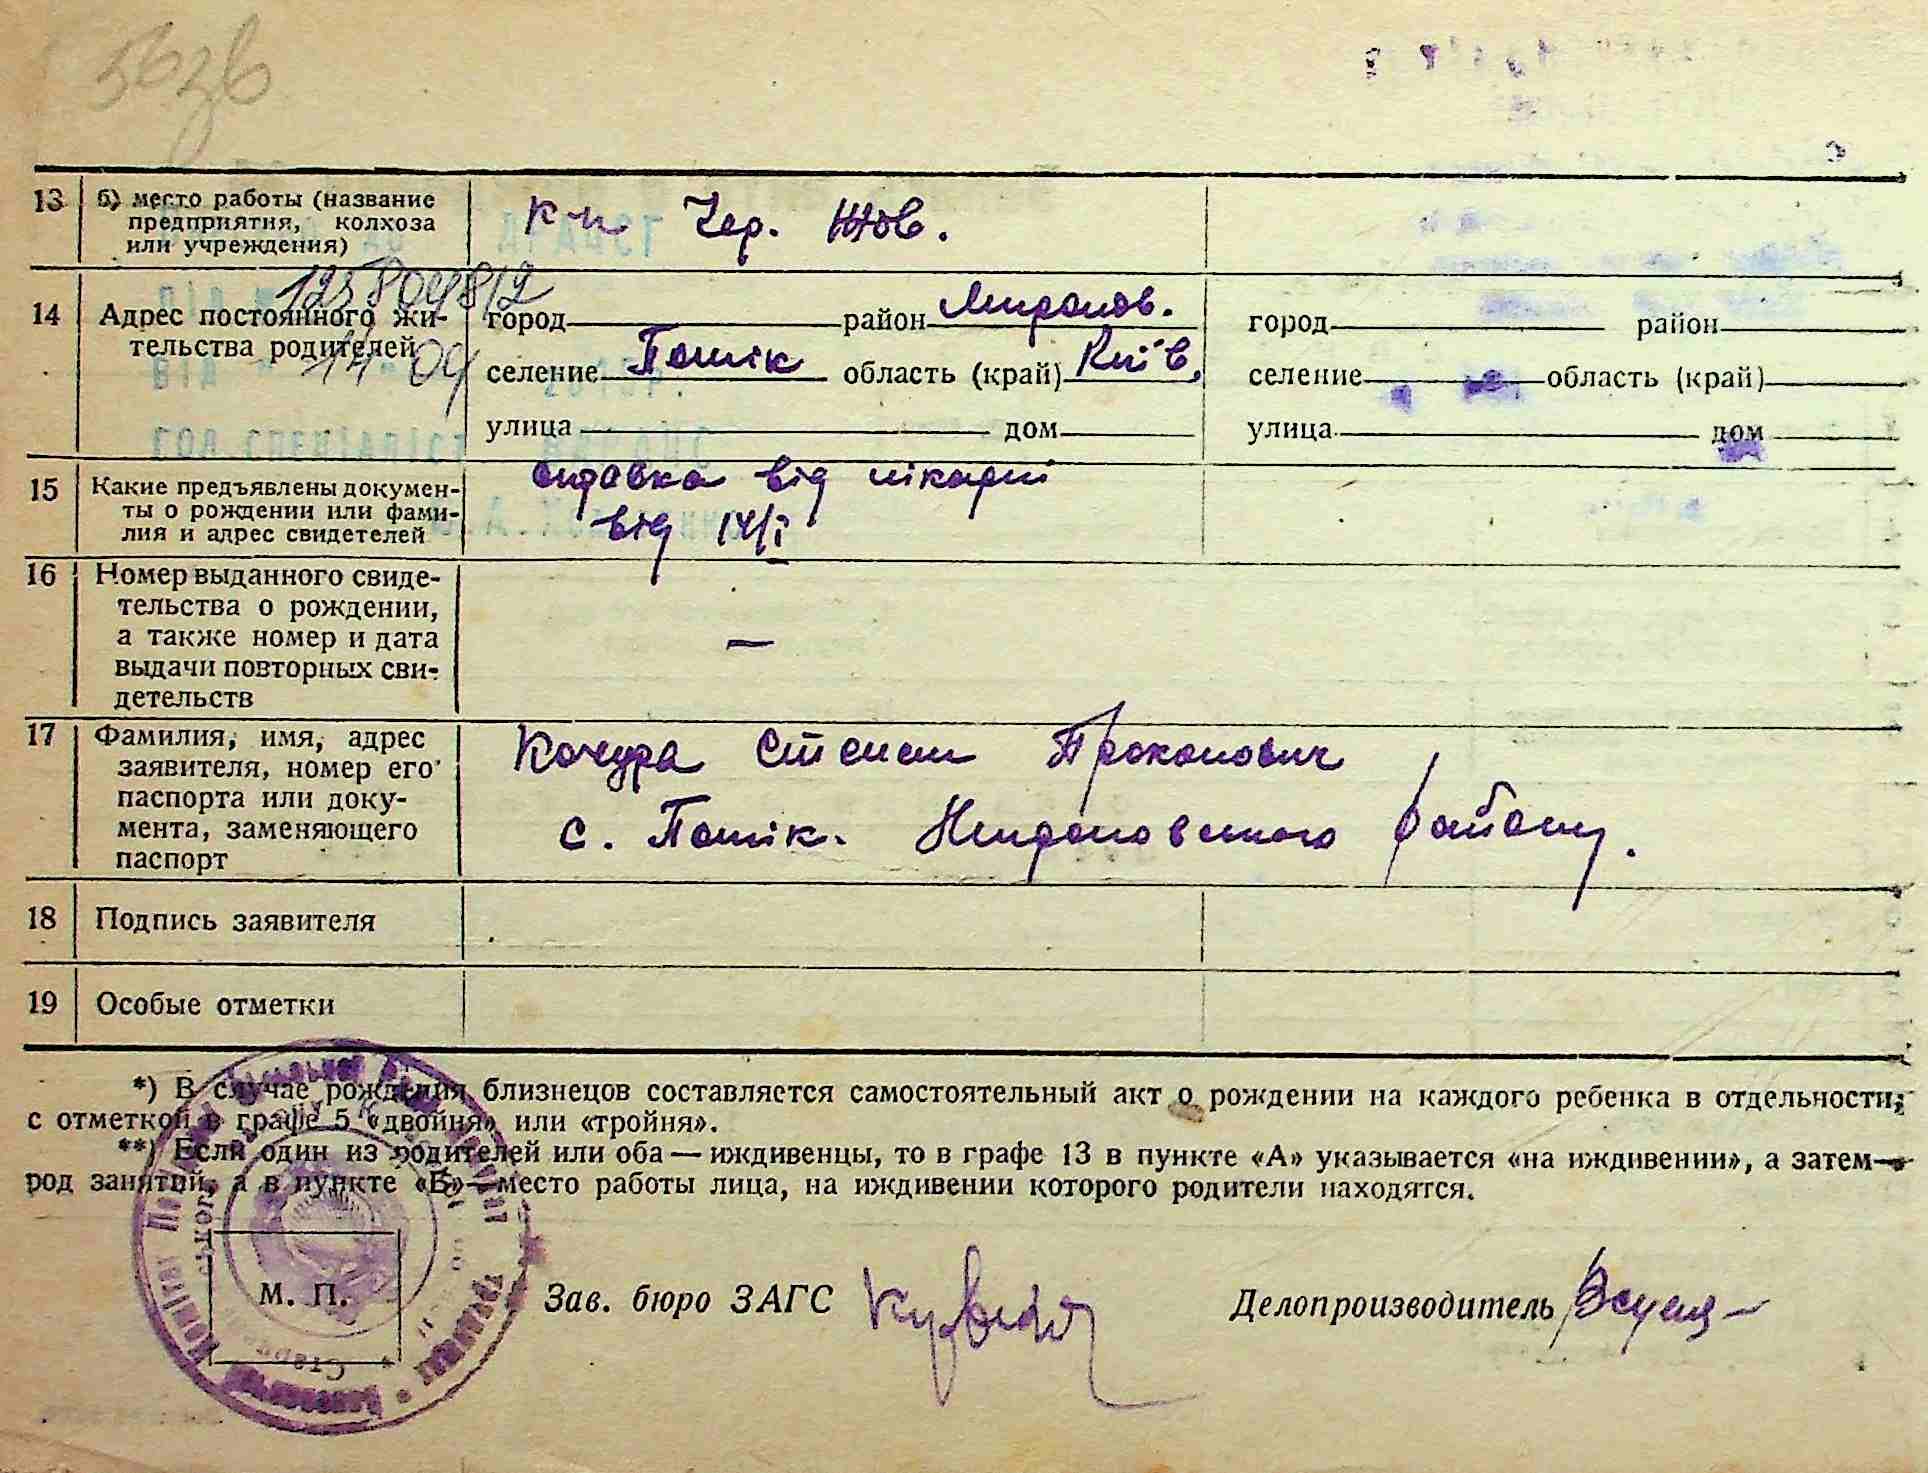 13 б) место работы (название
предприятия, колхоза
или учреждения)
к-п Чер. Жов.
14 Адрес постоянного жи-
тельства родителей
город район Миронов.
селение Потік область (край) Київ,
улица дом
город район
селение область (край)
улица дом
15 Какие предъявлены докумен-
ты о рождении или фами-
лия и адрес свидетелей
справка від лікарні
від 14/I
16 Номер выданного свиде-
тельства о рождении,
а также номер и дата
выдачи повторных сви-
детельств
—
17 Фамилия, имя, адрес
заявителя, номер его
паспорта или доку-
мента, заменяющего
паспорт
Кочура Степан Прокопович
с. Потік. Мироновского району.
18 Подпись заявителя
19 Особые отметки
*) В случае рождения близнецов составляется самостоятельный акт о рождении на каждого ребенка в отдельности,
с отметкой в графе 5 «двойня» или «тройня».
**) Если один из родителей или оба — иждивенцы, то в графе 13 в пункте «А» указывается «на иждивении», а затем—
род занятий, а в пункте «Б»—место работы лица, на иждивении которого родители находятся.
М. П.
Зав. бюро ЗАГС
Делопроизводитель